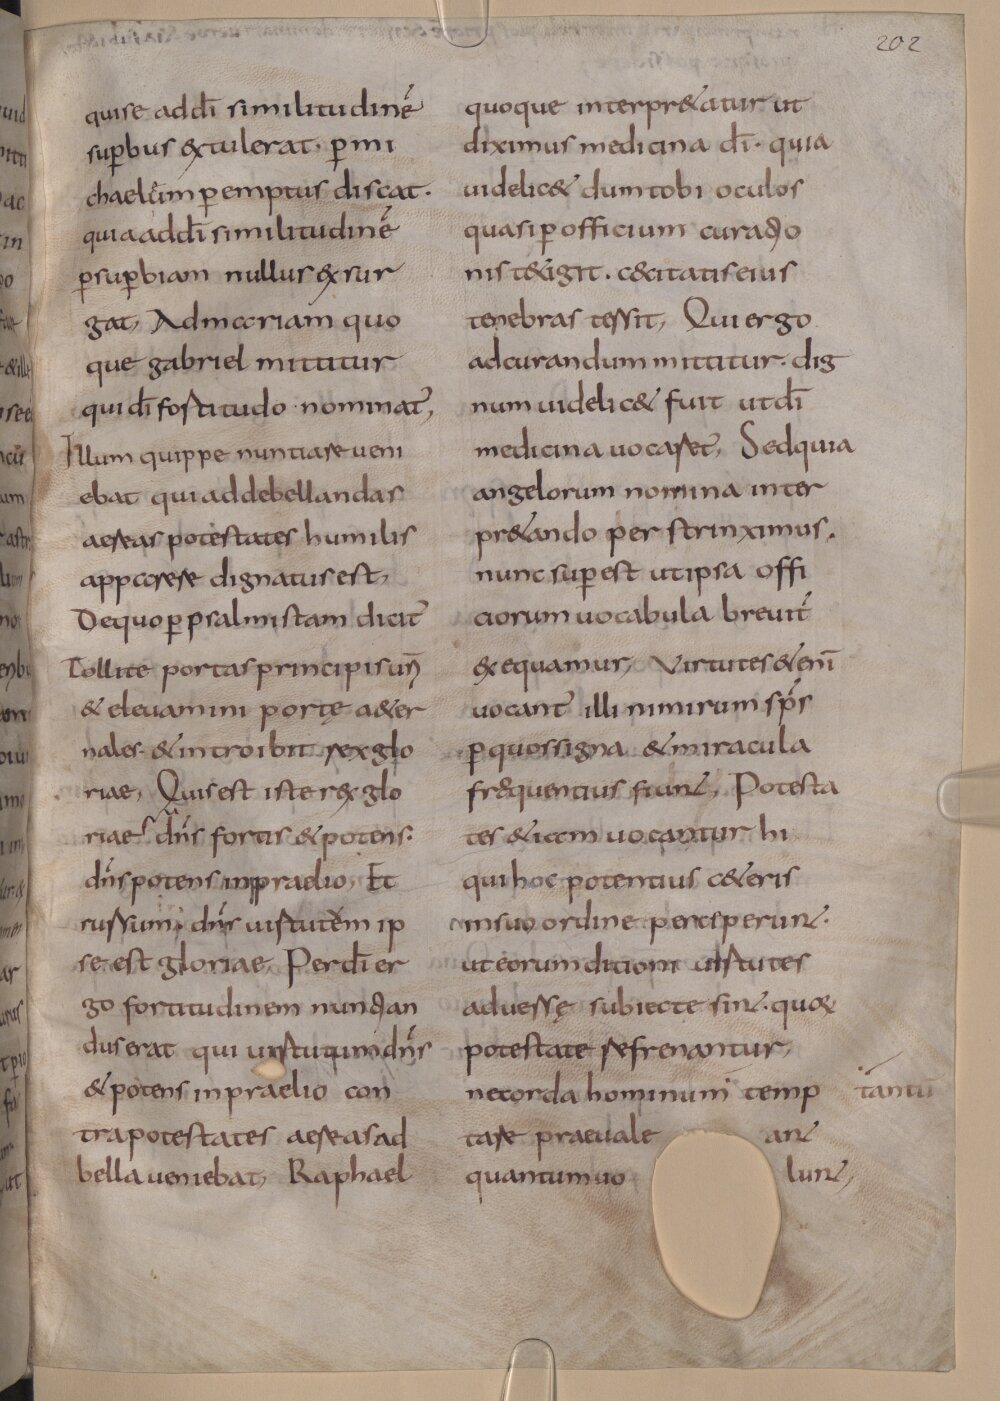 202
quise addī similitudinē
sup̱bus extulerat· p̱ mi
chaelem p̱emptus discat·
quia addī similitudinē
p̱sup̱biam nullus exsur
gat, Ad mariam quo
que gabriel mittitur
qui dī fortitudo nominat̄,
Illum quippe nuntiare veni
ebat qui ad debellandas
aereas potestates humilis
apparere dignatus est,
De quo p̱ psalmistam dicit̄
Tollite portas principis ur̄
& elevamini portę aeter
nales· & introibit rex glo
riae, Quis est iste rex glo
riae? dn̄s fortis & potens·
dn̄s potens in praelio, Et
russum, dn̄s virtutem ip
se est gloriae, Per dī er
go fortitudinem nuntian
dus erat qui virtutum dn̄s
& potens in praelio con
tra potestates aereas ad
bella veniebat, Raphael
quoque interpr&atur ut
diximus medicina dī· quia
videlic& dum tobi oculos
quasi p̱ officium curatio
nis t&igit· c&citatis eius
tenebras tersit, Qui ergo
ad curandum mittitur· dig
num videlic& fuit ut dī
medicina vocaret̄, Sed quia
angelorum nomina inter
pr&ando per strinximus·
nunc sup̱est ut ipsa offi
ciorum vocabula brevit̄
exequamur, Virtutes &enī
vocant̄ illi nimirum sp̄s
p̱ quos signa & miracula
frequentius fiunt, Potesta
tes &iam vocantur hi
qui hoc potentius c&eris
in suo ordine perceperunt·
ut eorum dicioni virtutes
adverse subiecte sint· quorum
potestate refrenantur,
ne corda hominum temp tantū
tare praevale ant
quantum vo lunt,